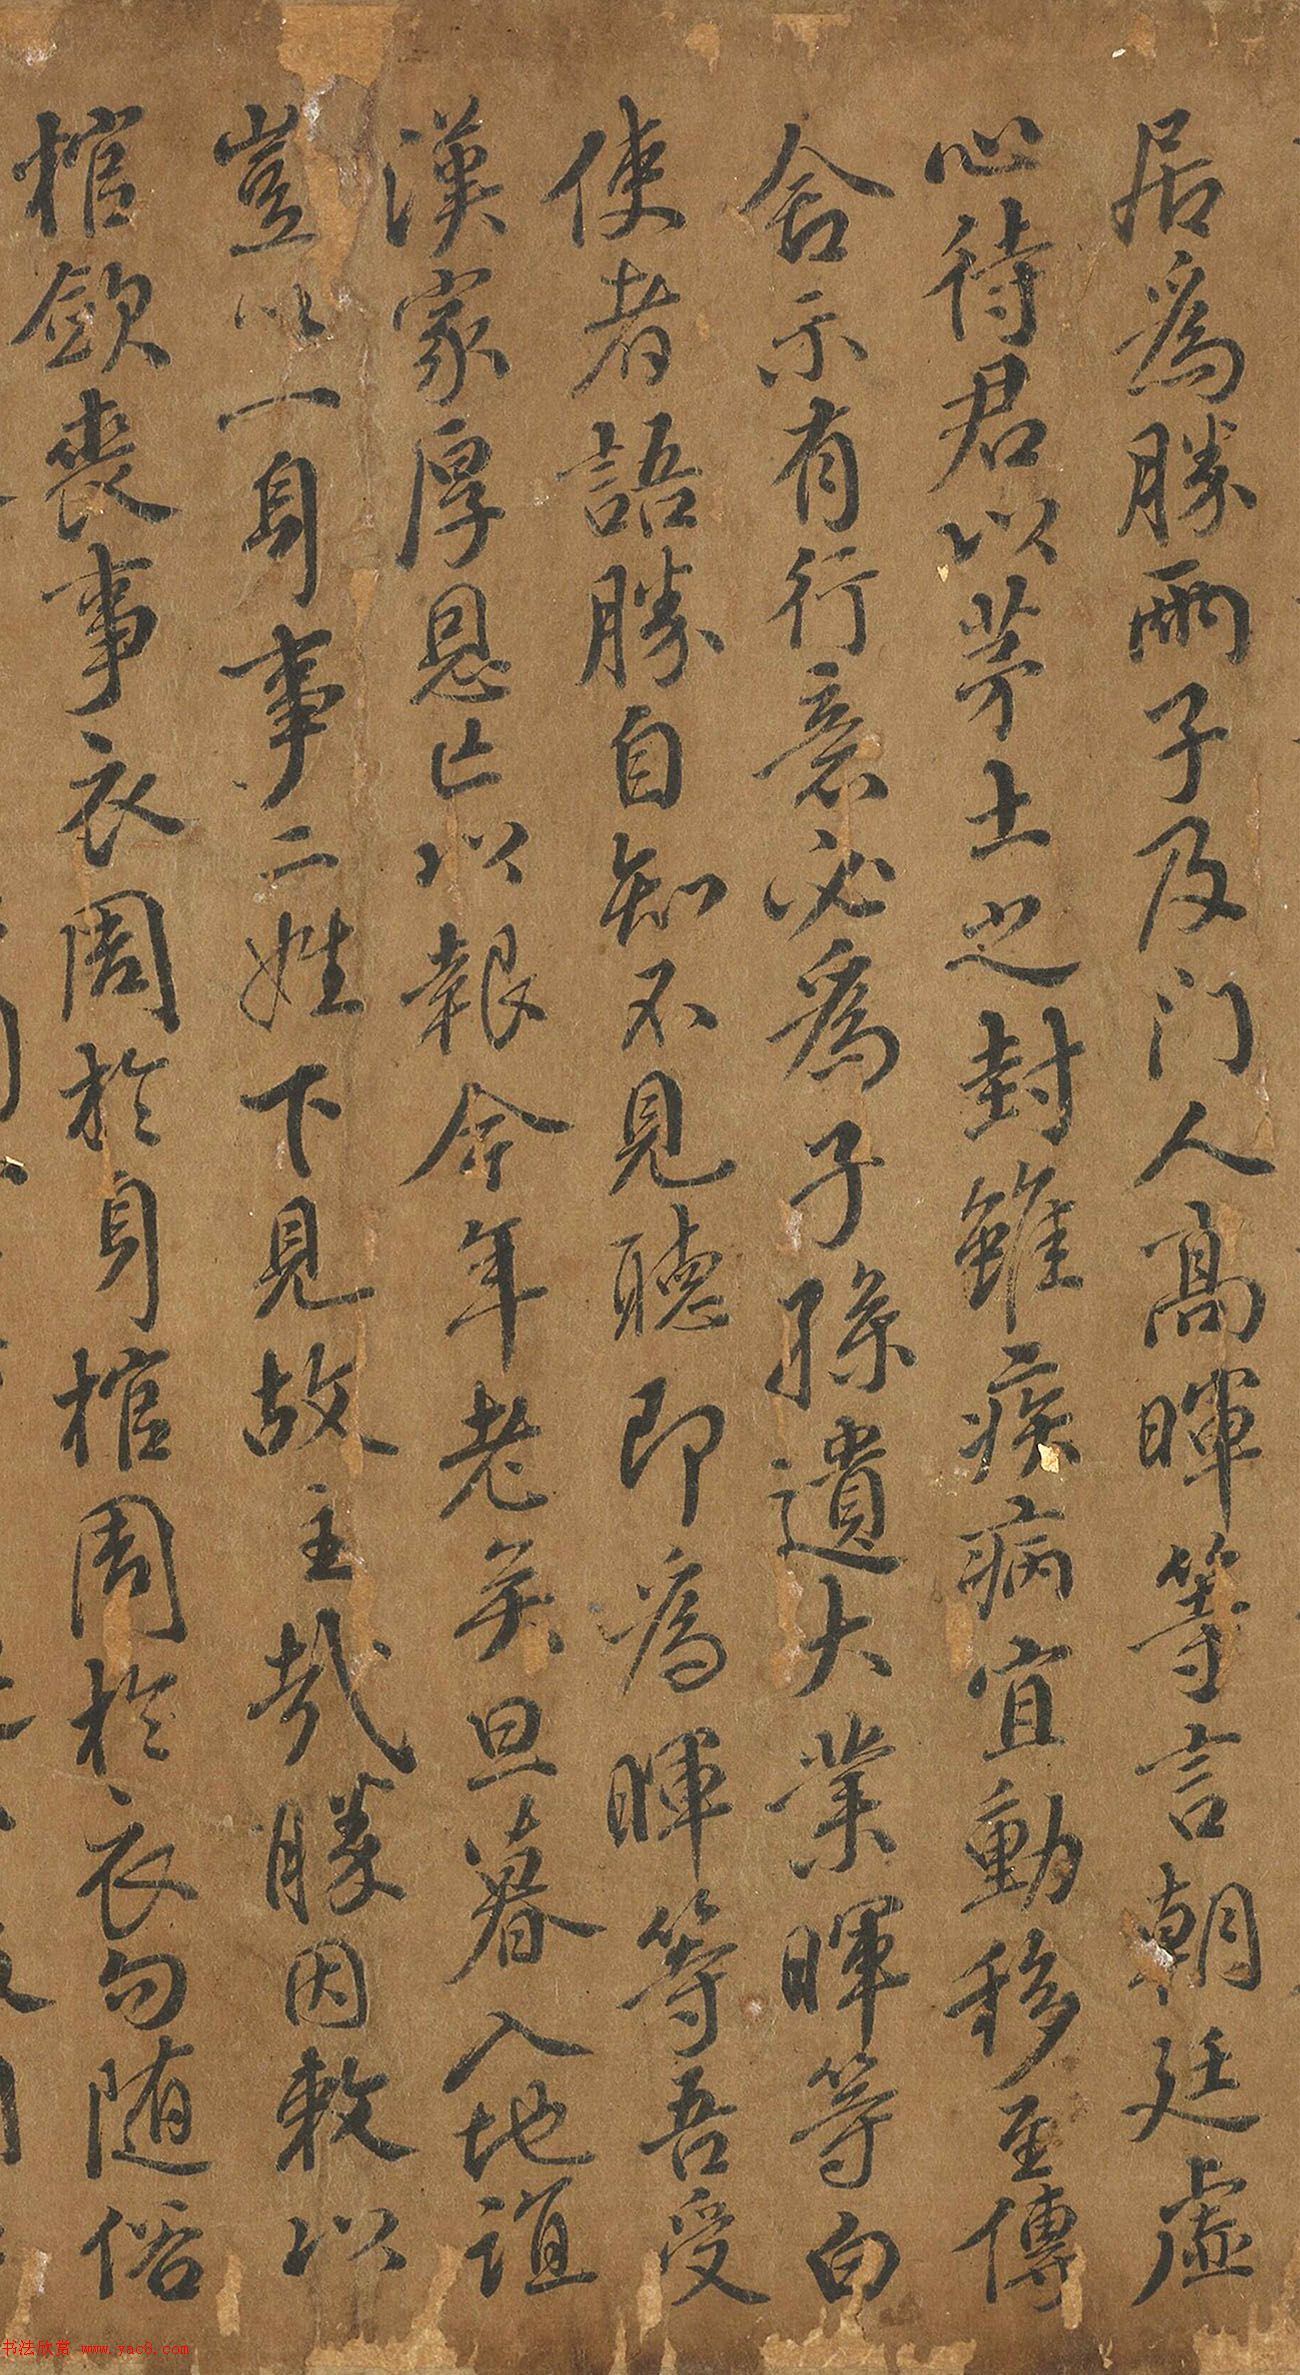 居為勝兩子及门人高暉等言朝廷虛
心待君以茅土之封雖疾病宜動移至傳
舍示有行意必為子孫遺大業暉等白
使者語勝自知不見聽即為暉等吾受
漢家厚恩亡以報今年老矣旦暮入地誼
豈以一身事二姓下見故主哉勝因敕以
棺斂喪事衣周於身棺周於衣勿随俗
书法欣赏 www.yac8.com